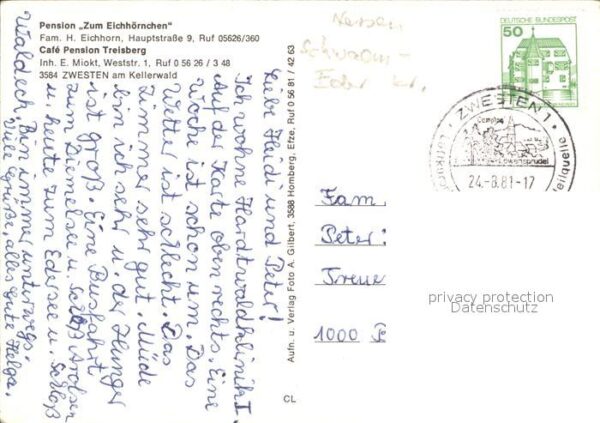 Pension „Zum Eichhörnchen"
Fam. H. Eichhorn, Hauptstraße 9, Ruf 05626/360
Café Pension Treisberg
Inh. E. Miokt, Weststr. 1, Ruf 0 56 26 / 3 48
3584 ZWESTEN am Kellerwald
Hessen
Schwalm-
Eder Kr.
DEUTSCHE BUNDESPOST
50
ZWESTEN 1
Löwensprudel
24.-8.81-17
Liebe Heidi und Peter!
Ich wohne Hardtwaldklinik I.
Auf der Karte oben rechts. Eine
Woche ist schon um. Das
Wetter ist schlecht. Das
Zimmer sehr gut. Müde
bin ich sehr u. der Hunger
ist groß. Eine Busfahrt
zum Diemelsee u. Schloß Arolsen
u. heute zum Edersee u. Schloß
Waldeck. Bin immer unterwegs.
Viele Grüße, alles Gute Helga.
Aufn. u. Verlag Foto A. Gilbert, 3588 Homberg, Efze, Ruf 0 56 81 / 42 63
CL
Fam.
Peter
1000
privacy protection
Datenschutz